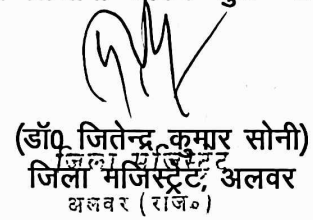 (डॉ0 जितेन्द्र कुमार सोनी)
जिला मजिस्ट्रेट
जिला मजिस्ट्रेट, अलवर
अलवर (राज०)